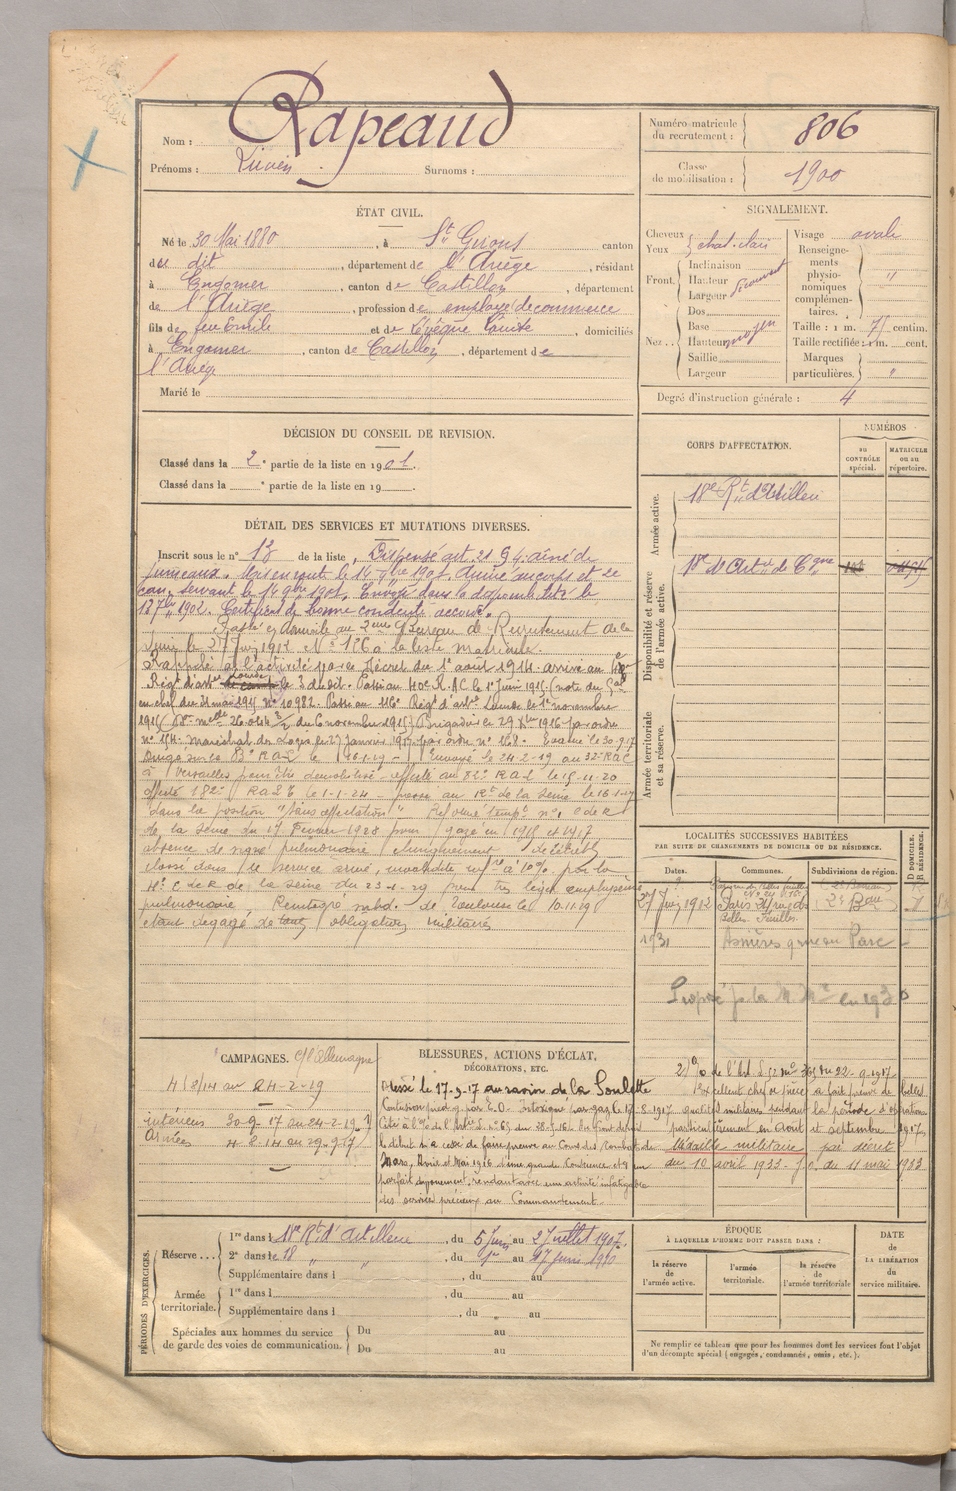 Nom : Rapeaud
Prénoms : Lucien Surnoms :
Numéro matricule du recrutement : 806
Classe de mobilisation : 1900
ÉTAT CIVIL.
Né le 30 Mai 1880, à St Girons canton
du dit, département de l'Ariège, résidant
à Engomer, canton de Castillon, département
de l'Ariège, profession de employé de commerce
fils de feu Emile et de domiciliés
à Engomer, canton de Castillon, département de
l'Ariège
Marié le
SIGNALEMENT.
Cheveux
Yeux } chat. clair
Front. { Inclinaison
Hauteur
Largeur
Nez.. { Dos
Base
Hauteur moyen
Saillie
Largeur
Visage ovale
Renseignements physionomiques complémentaires. "
Taille : 1 m. 71 centim.
Taille rectifiée : 1 m. cent.
Marques particulières. "
Degré d'instruction générale : 4
DÉCISION DU CONSEIL DE REVISION.
Classé dans la 2e partie de la liste en 1901.
Classé dans la e partie de la liste en 19
CORPS D'AFFECTATION.
NUMÉROS
au CONTRÔLE spécial.
MATRICULE ou au répertoire.
Armée active.
18e Rt d'Artillerie
Disponibilité et réserve de l'armée active.
18e d'Art de Cgne
Armée territoriale et sa réserve.
DÉTAIL DES SERVICES ET MUTATIONS DIVERSES.
Inscrit sous le n° 13 de la liste, Dispensé art. 21 aîné de
jumeaux. Mis en route le 14 9bre 1901. Arrivé au corps et 2e
can. servant le 14 9bre 1901. Envoyé dans la disponibilité le
1902. Certificat de bonne conduite accordé.
Passé en domicile au 2eme Bureau de Recrutement de la
Seine le 27 Juin 1912 N° 126 à la liste matricule.
Rappelé à l'activité Décret du 1er août 1914. arrivé au
Régt d'art lourde le 3 dudit. Passé au 40e R.AC le 1er Juin 1915 (note du Gal
en chef du 31 mai 1915 n° 10982. Passé au 116e Régt d'artie Lourde le 1er novembre
1915 du 6 novembre 1915) Brigadier le 29 1916 par ordre
n° 154. Maréchal des Logis le 27 janvier 1917 par ordre n° 168. Evacué le 30-9-17
Dirigé sur le RAL le 16-1-19 Envoyé le 24-2-19 au 32e RAC
à Versailles pour être démobilisé affecté au 82e RAL le 15-11-20
affecté 182e RALT le 1-1-24 passé au Rt de la Seine le
dans la position "sans affectation" Réformé tempre n° 1 C de R
de la Seine du 17 Février 1928 pour gazé en 1915 et 1917
absence de signe pulmonaire
classé dans le service armé, invalidité à 10% par la
C de R de la Seine du 23-1-29 pour très léger emphysème
pulmonaire Réintégré subd. de Toulouse le 10.11.29
étant dégagé de toutes obligations militaires
LOCALITÉS SUCCESSIVES HABITÉES
PAR SUITE DE CHANGEMENTS DE DOMICILE OU DE RÉSIDENCE.
Dates. Communes. Subdivisions de région. D DOMICILE. R RÉSIDENCE.
27 Juin 1912 Paris 24 rue des Belles Feuilles 2e Bau
1931 Asnières rue du Parc
Proposé pr la M. Mre en 1930
CAMPAGNES. C/ l'Allemagne
4/8/14 au 24-2-19
intérieur 30-9-17 au 24-2-19
Armées 4-8-14 au 29-9-17
BLESSURES, ACTIONS D'ÉCLAT, DÉCORATIONS, ETC.
Blessé le 17-9-17 au ravin de la Goulette
Contusion pied g. par E.O. Intoxiqué par gaz le 17-8-1917
Cité à l'O/ de l'Artie n° 63 du 28-5-16
le début n'a cessé de faire preuve au Cours des Combats de
Mars, Avril et Mai 1916 d'une grande Conscience et d'un
parfait dévouement, rendant avec une activité infatigable
des services précieux au Commandement.
2) O/ de l'Art. n° 365 du 22-9-1917.
Excellent chef de pièce a fait preuve de belles
qualités militaires pendant la période d'opérations
particulièrement en Août et septembre 1917.
Médaille militaire par décret
du 10 avril 1933 J.O. du 11 mai 1933
PÉRIODES D'EXERCICES.
Réserve... { 1re dans l 18e Rt d'Artillerie, du 5 Juin au 2 Juillet 1907
2e dans le 18 " ", du 1er au 17 Juin 1910
Supplémentaire dans l , du au
Armée territoriale. { 1re dans l , du au
Supplémentaire dans l , du au
Spéciales aux hommes du service de garde des voies de communication. { Du au
Du au
ÉPOQUE
À LAQUELLE L'HOMME DOIT PASSER DANS :
la réserve de l'armée active.
l'armée territoriale.
la réserve de l'armée territoriale
DATE de LA LIBÉRATION du service militaire.
Ne remplir ce tableau que pour les hommes dont les services font l'objet
d'un décompte spécial (engagés, condamnés, omis, etc.).